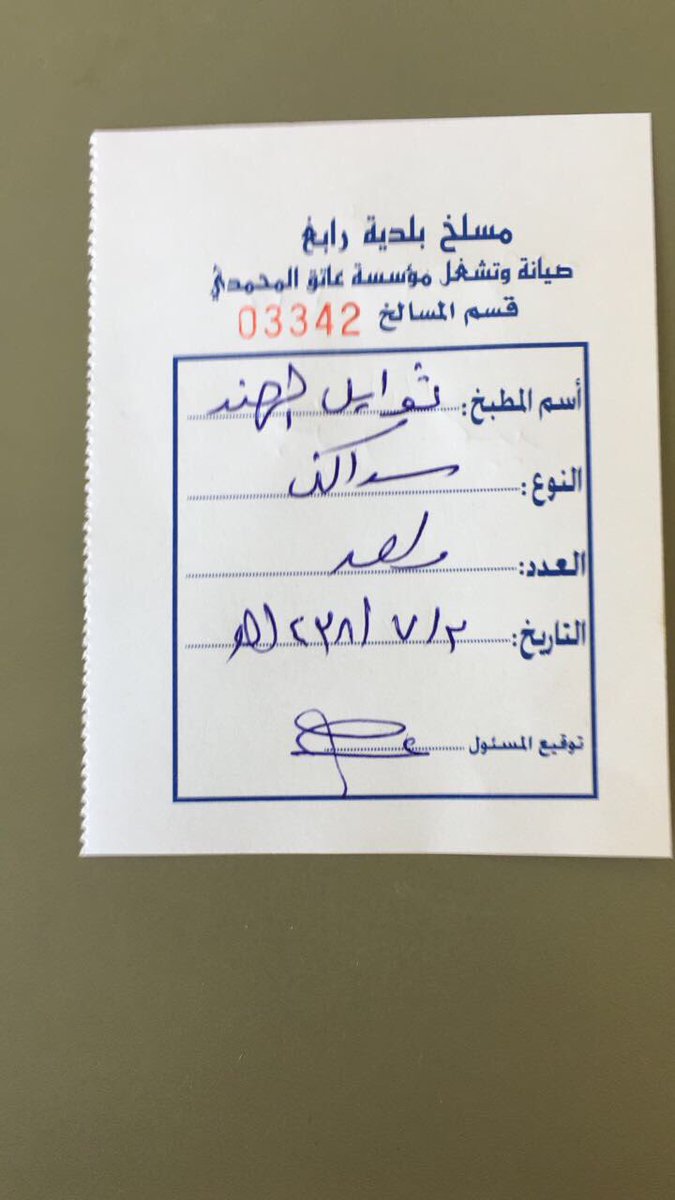 مسلخ بلدية رابغ
صيانة وتشغل مؤسسة عاتق المحمدي
قسم المسالخ 03342
أسم المطبخ: توابل الهند
النوع:
العدد: واحد
التاريخ: ٢/٧/١٤٣٨هـ
توقيع المسئول